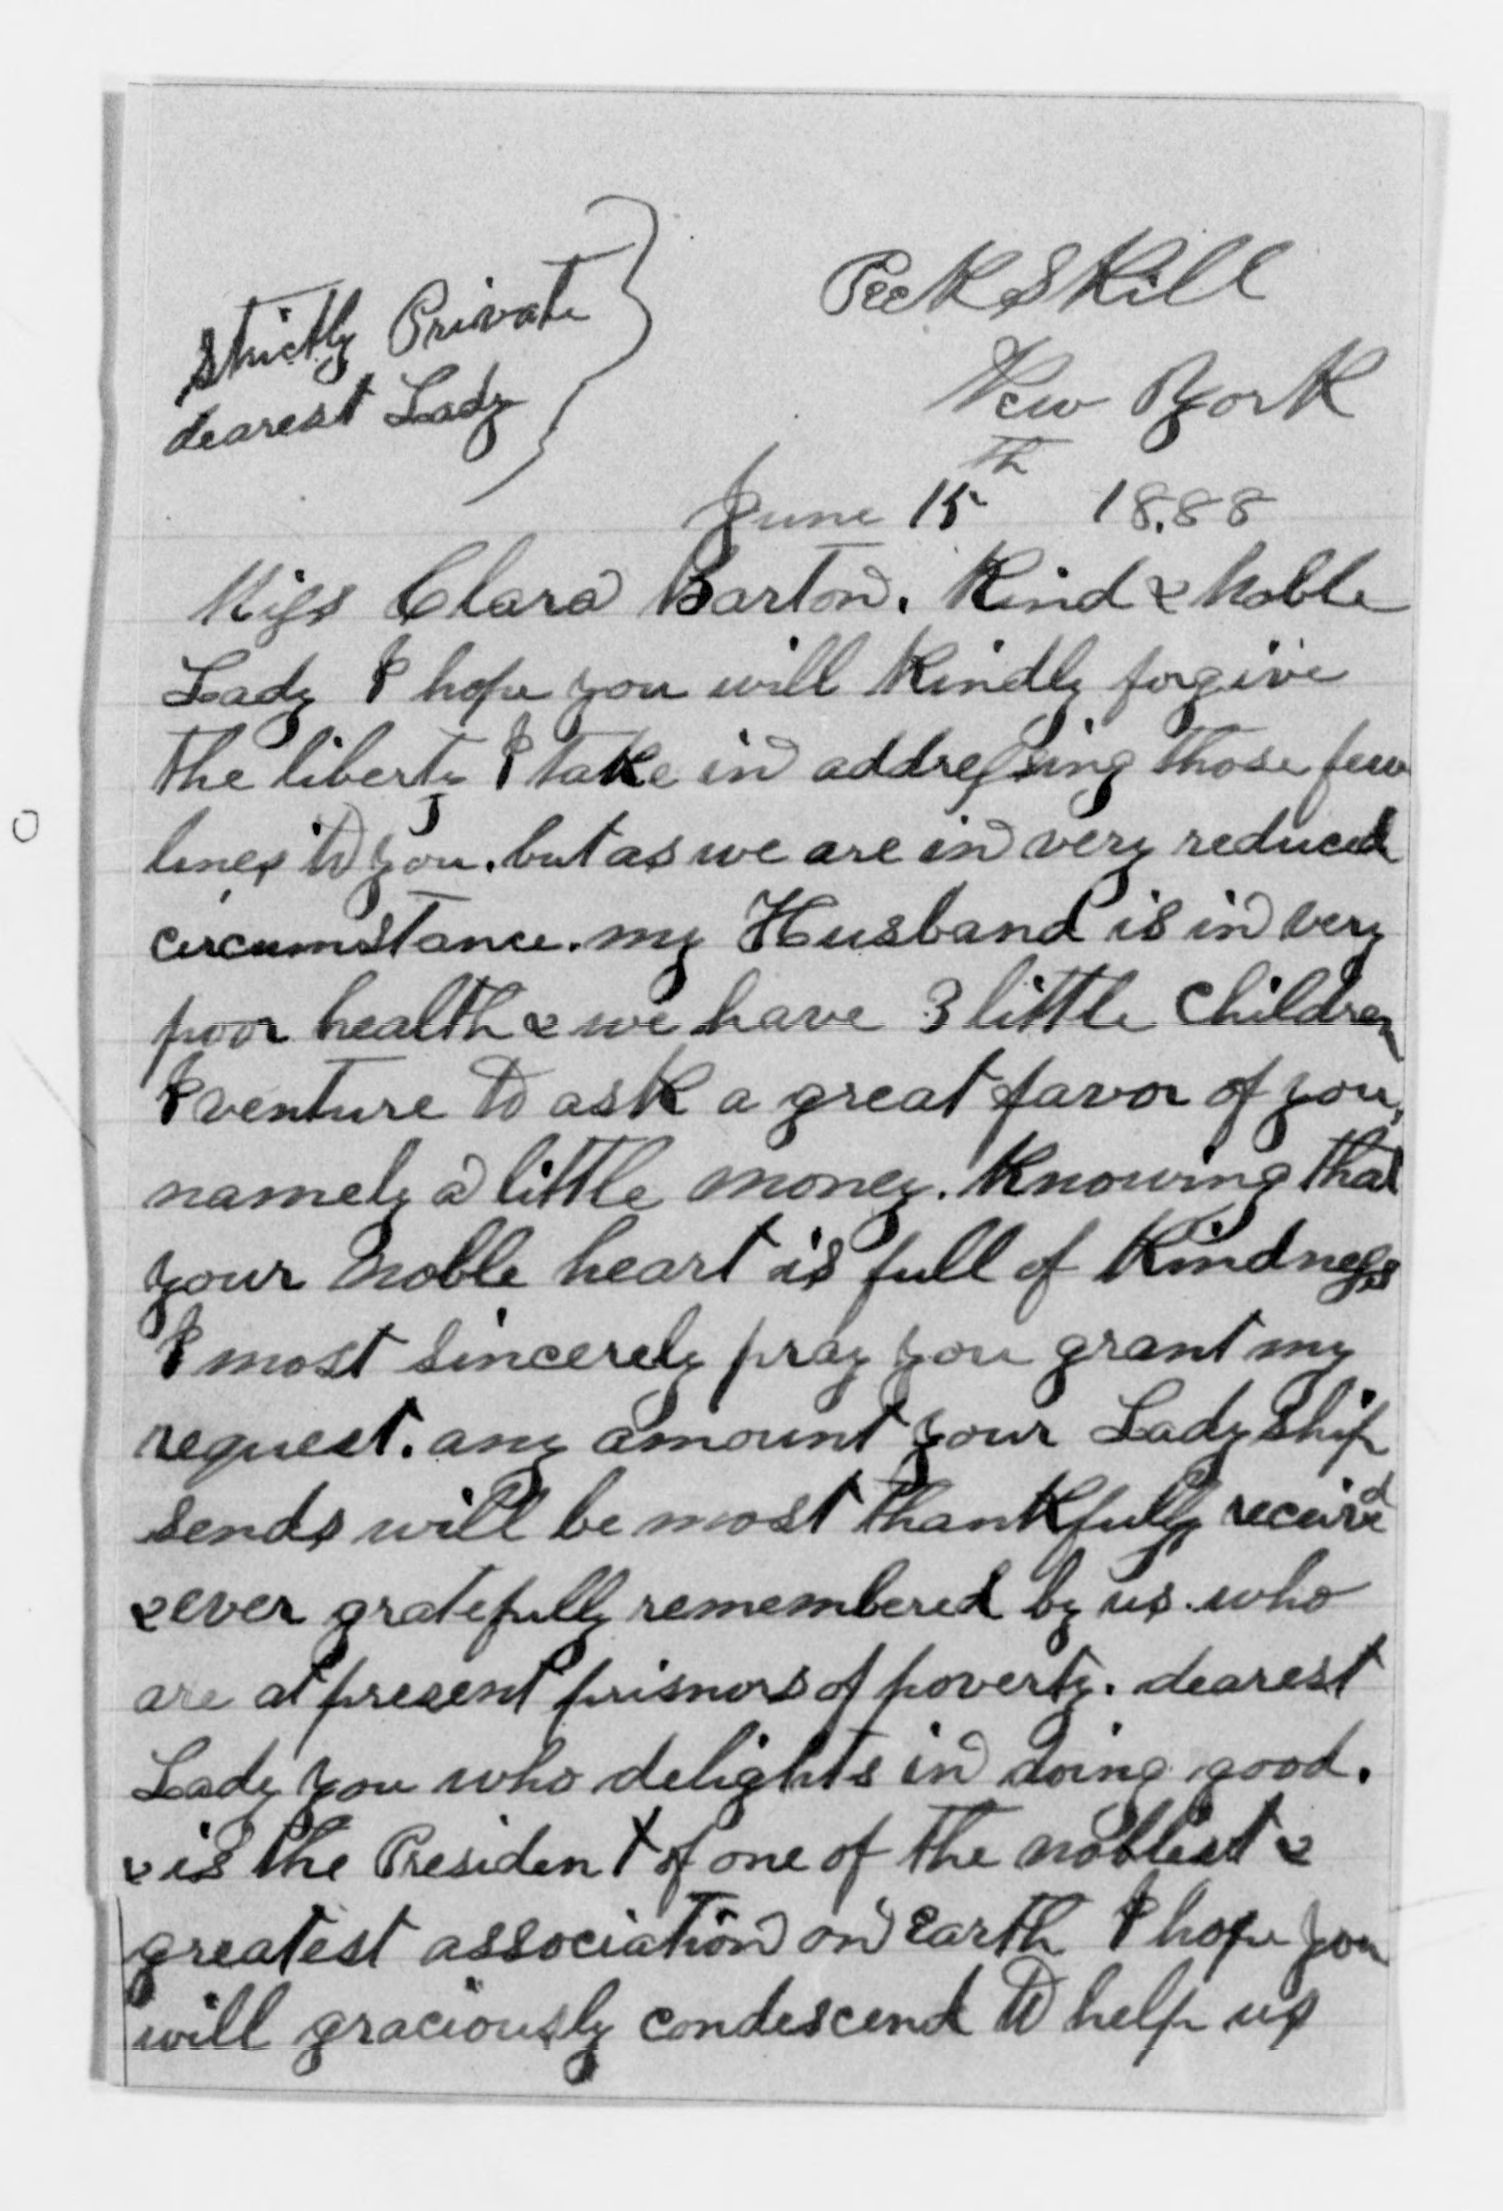 Strictly Private
dearest Lady
PeekSKill
New York
June 15th 18.88
Miss Clara Barton. Kind & Noble
Lady I hope you will Kindly forgive
the liberty I take in addressing those few
lines to you. but as we are in very reduced
circumstance. my Husband is in very
poor health & we have 3 little Children
I venture to ask a great favor of you,
namely a little money. Knowing that
your noble heart is full of Kindness
I most sincerely pray you grant my
request. any amount your Ladyship
sends will be most thankfully receiv'd
& ever gratefully remembered by us. who
are at present prisnors of poverty. dearest
Lady you who delights in doing good.
& is the President of one of the noblest &
greatest association on Earth I hope you
will graciously condescend to help us